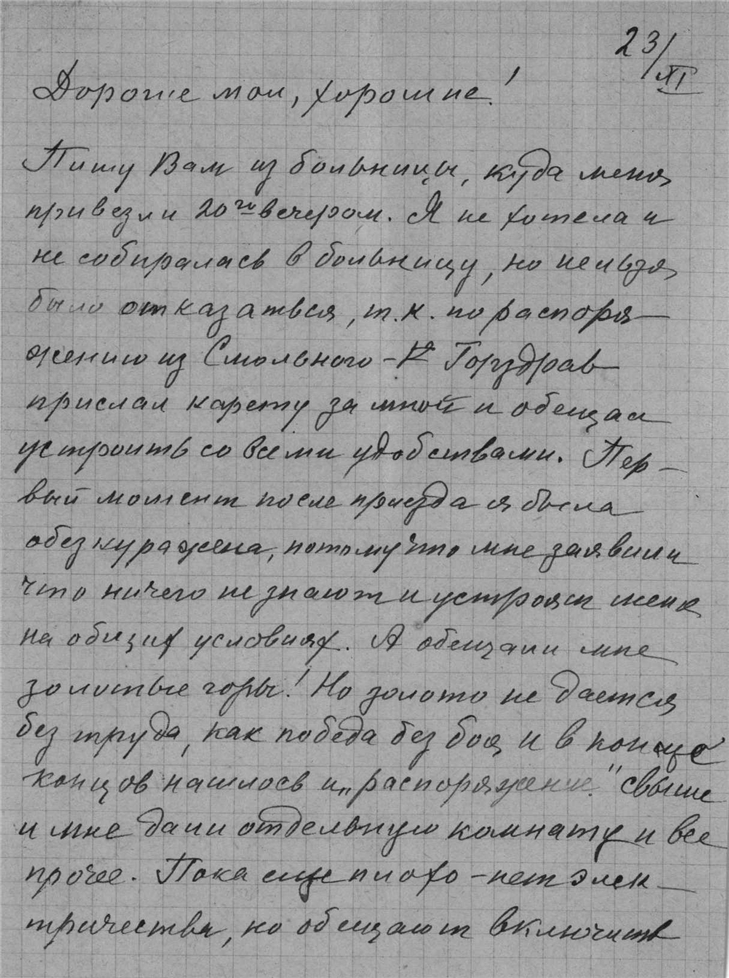 23/XI
Дорогие мои, хорошие!
Пишу Вам из больницы, куда меня
привезли 20го вечером. Я не хотела и
не собиралась в больницу, но нельзя
было отказаться, т.к. по распоря-
жению из Смольного - Горздрав
прислал карету за мной и обещал
устроить со всеми удобствами. Пер-
вый момент после приезда я была
обезкуражена, потому что мне заявили
что ничего не знают и устроят меня
на общих условиях. А обещали мне
золотые горы! Но золото не дается
без труда, как победа без боя и в конце
концов нашлось и „распоряжение" свыше
и мне дали отдельную комнату и все
прочее. Пока еще плохо - нет элек-
тричества, но обещают включить